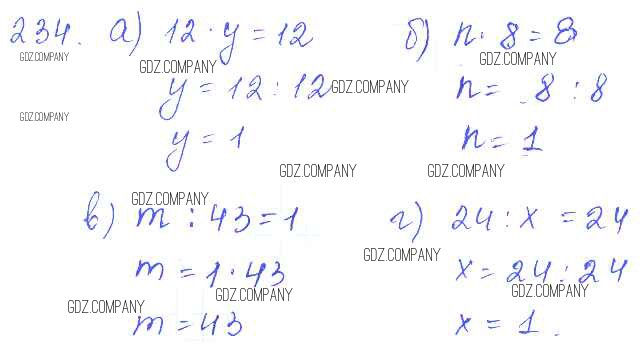 234. а) 12 · y = 12   б) n · 8 = 8
GDZ.COMPANY GDZ.COMPANY GDZ.COMPANY
y = 12 : 12 GDZ.COMPANY n = 8 : 8
GDZ.COMPANY
y = 1   n = 1
GDZ.COMPANY GDZ.COMPANY
GDZ.COMPANY
в) m : 43 = 1   г) 24 : x = 24
GDZ.COMPANY
m = 1 · 43   x = 24 : 24
GDZ.COMPANY GDZ.COMPANY
GDZ.COMPANY
m = 43   x = 1.